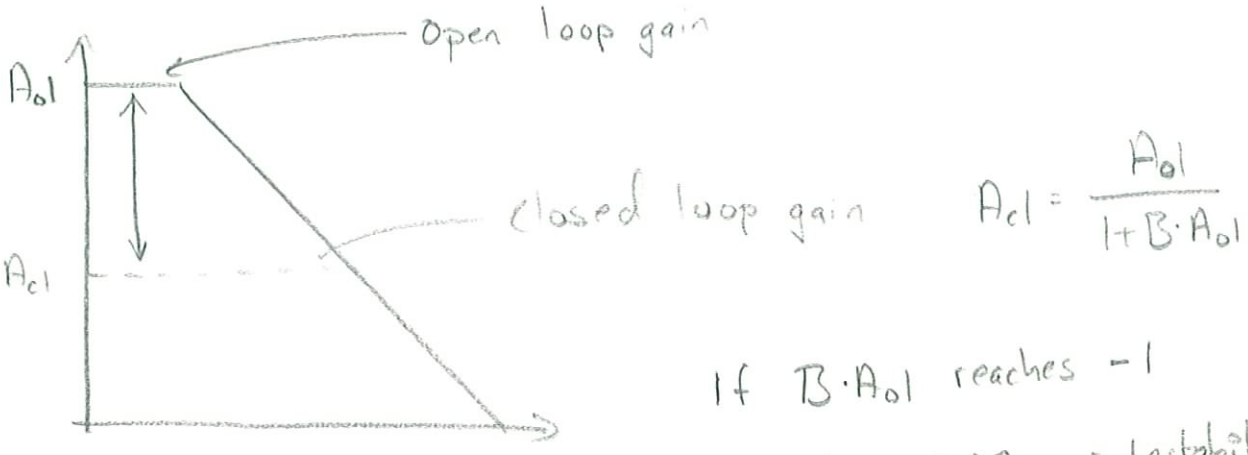 Open loop gain
Aol
closed loop gain
Acl = Aol / 1+B·Aol
Acl
If B·Aol reaches -1